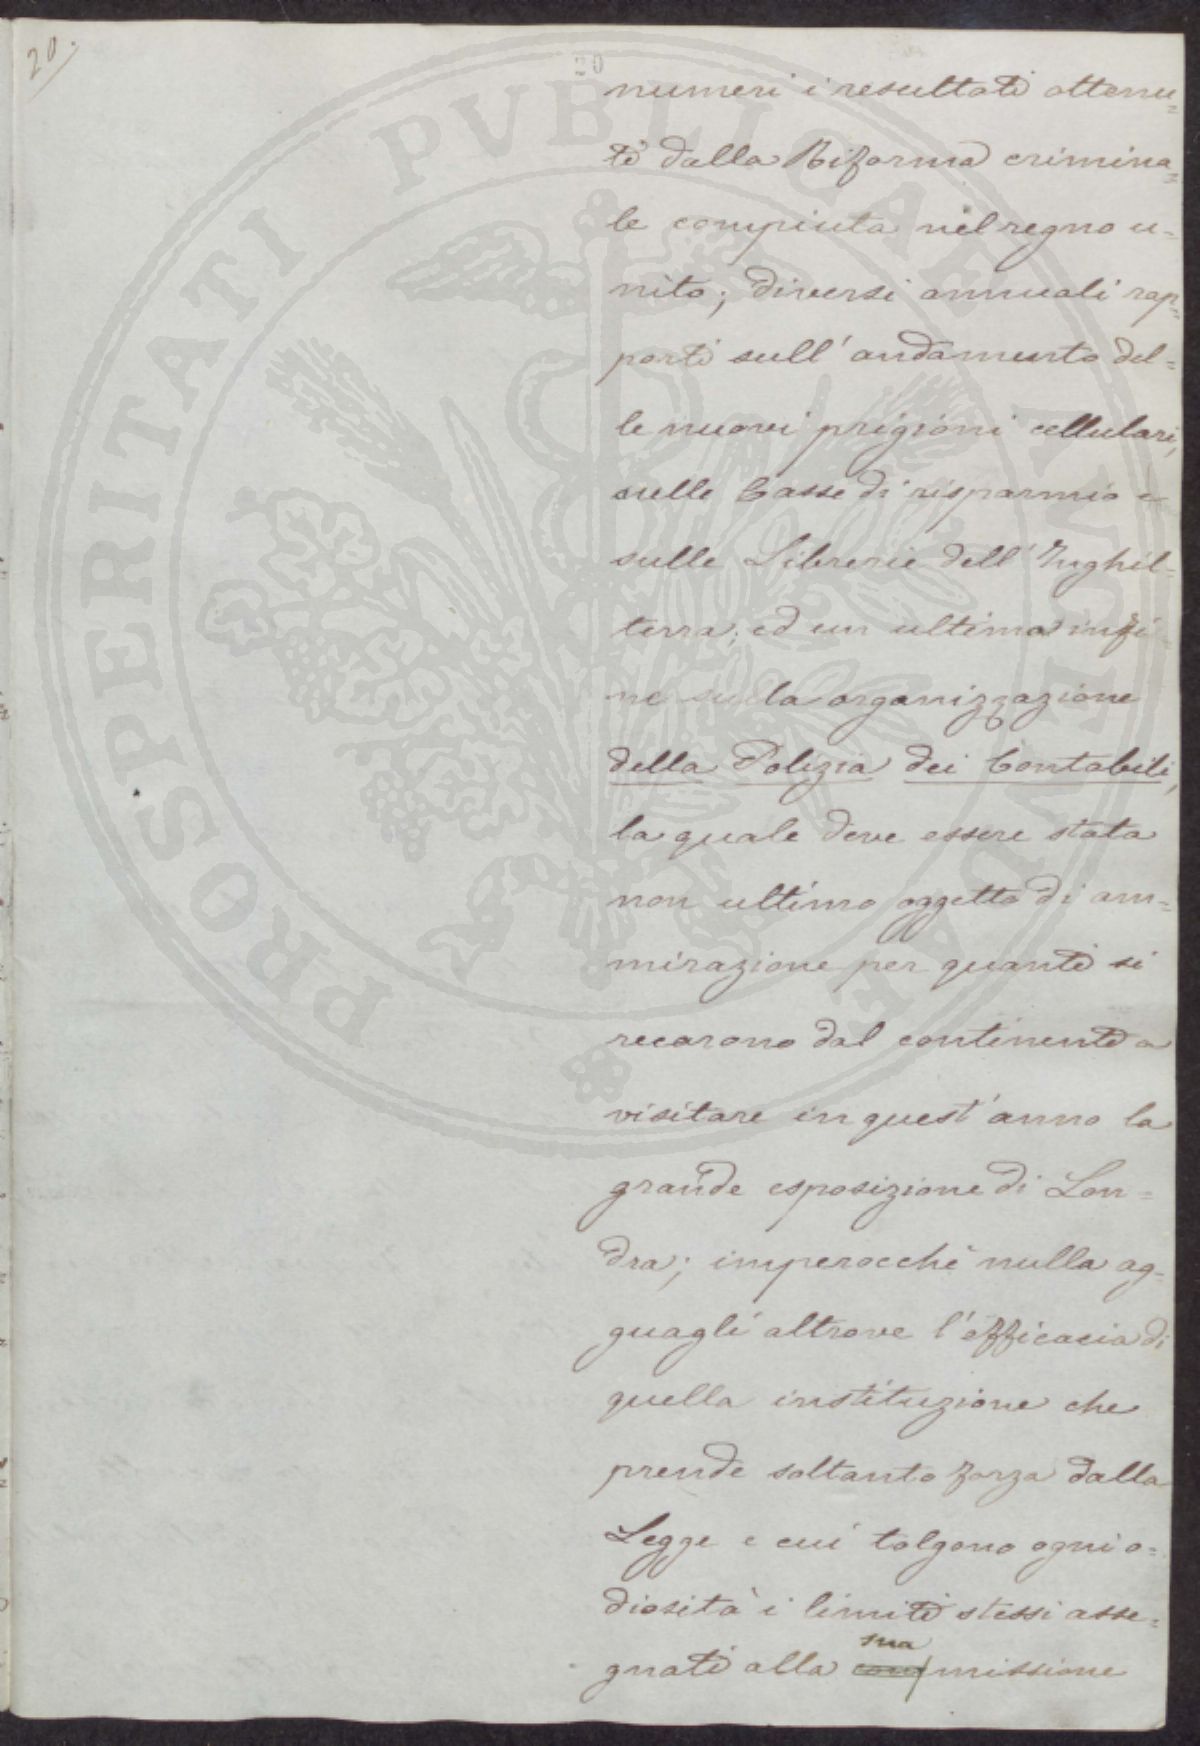 20.
20
numeri i resultati ottenu=
ti dalla Riforma crimina=
le compiuta nel regno u=
nito; diversi annuali rap=
porti sull'andamento del=
le nuovi prigioni cellulari,
sulle Casse di risparmio e
sulle Librerie dell'Inghil=
terra; ed un ultimo infi
ne sulla organizzazione
della Polizia dei Contabili,
la quale deve essere stata
non ultimo oggetto di am=
mirazione per quanti si
recarono dal continente a
visitare in quest'anno la
grande esposizione di Lon=
dra; imperocchè nulla ag=
guagli altrove l'efficacia di
quella instituzione che
prende soltanto forza dalla
Legge e cui tolgono ogni o=
diosità i limiti stessi asse=
sua
gnati alla com missione
PROSPERITATI PVBLICAE AVGENDAE